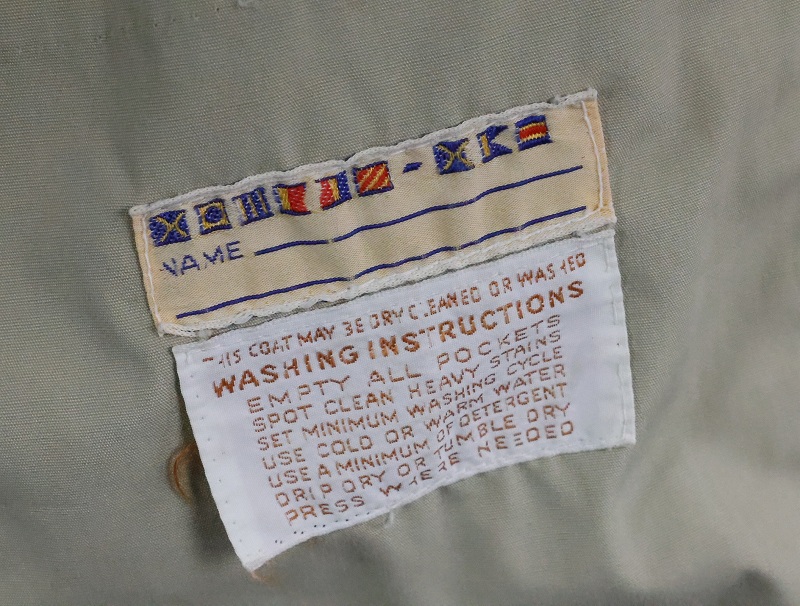 NAME
THIS COAT MAY BE DRY CLEANED OR WASHED
WASHING INSTRUCTIONS
EMPTY ALL POCKETS
SPOT CLEAN HEAVY STAINS
SET MINIMUM WASHING CYCLE
USE COLD OR WARM WATER
USE A MINIMUM OF DETERGENT
DRIP DRY OR TUMBLE DRY
PRESS WHERE NEEDED